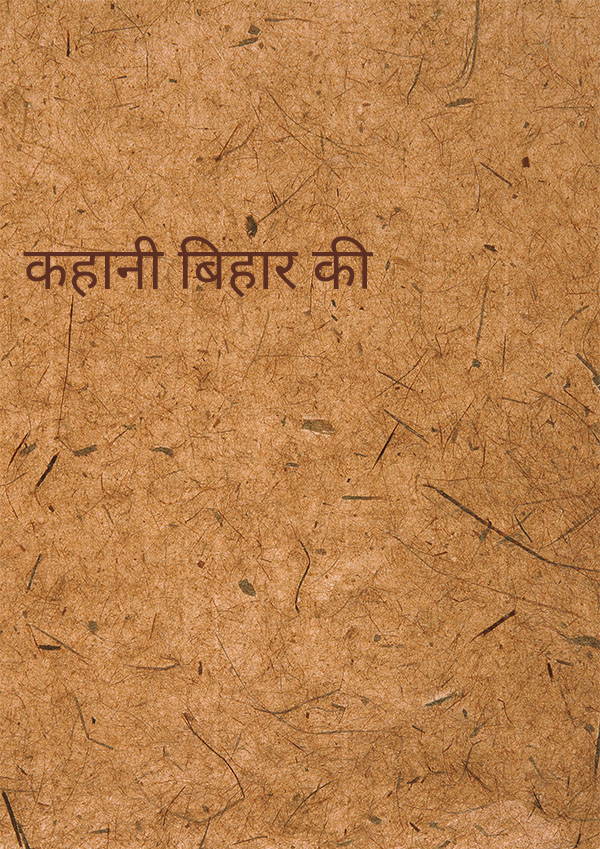 कहानी बिहार की